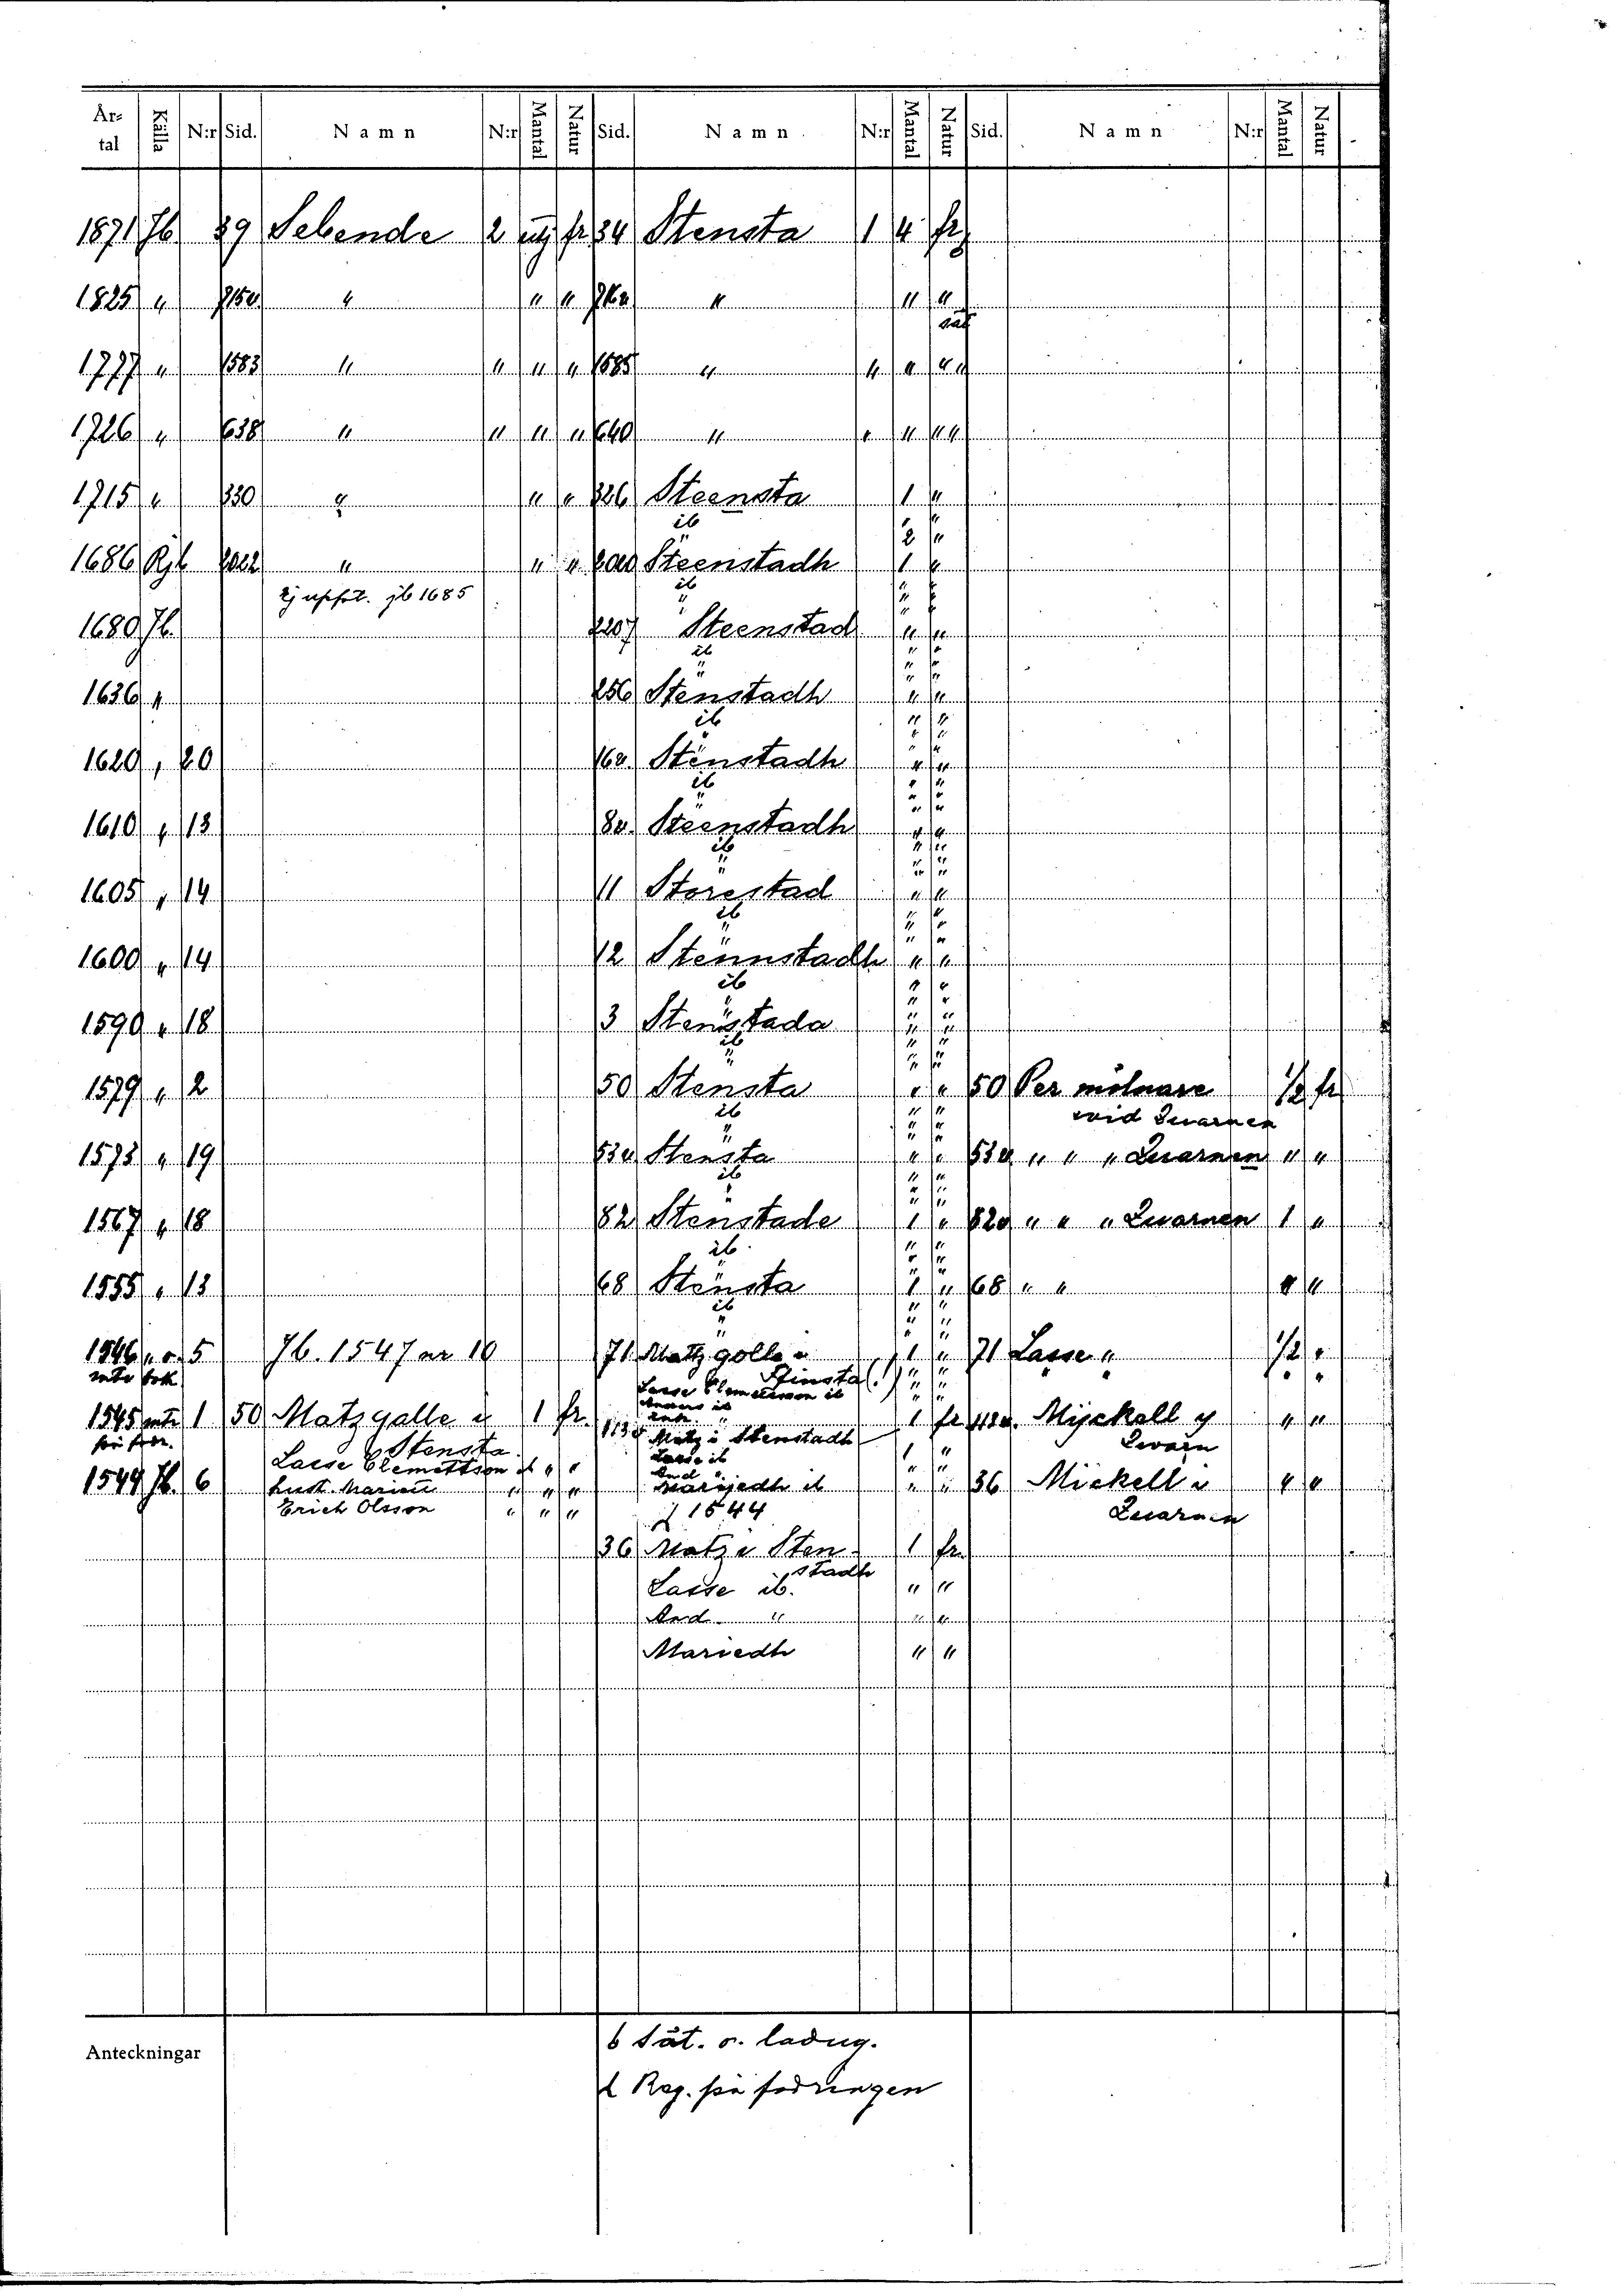 År-tal Källa N:r Sid. Namn N:r Mantal Natur Sid. Namn N:r Mantal Natur Sid. Namn N:r Mantal Natur
1871 Jb 39 Sebende 2 fr 34 Stensta 1 4 fr
1825 " 715v " " " 716v " " "
sät
1777 " 1583 " " " " 1585 " " " " "
1726 " 638 " " " " 640 " " " " "
1715 " 330 " " " 326 Steensta 1 "
ib 2 "
1686 Rjb 2022 " " " 2020 Steenstadh 1 "
Ej uppt. jb 1685 ib " "
" " "
1680 Jb. 2207 Steenstad " "
ib " "
" " "
1636 " 256 Stenstadh " "
ib " "
" "
1620 " 20 162 Stenstadh " "
ib " "
" " "
1610 " 13 80 Steenstadh " "
ib " "
" " "
1605 " 14 11 Storestad " "
ib " "
" " "
1600 " 14 12 Stennstadh " "
ib " "
" " "
1590 " 18 3 Stenstada " "
ib " "
" " "
1579 " 2 50 Stensta " " 50 Per mölnare 1/2 fr
ib " " wid Quarnen
" " "
1573 " 19 53v Stensta " " 53v " " " Quarnen " "
ib " "
" " "
1567 " 18 82 Stenstade 1 " 82v " " " Quarnen 1 "
ib " "
" "
1555 " 13 68 Stensta 1 " 68 " " " "
ib " "
" " "
1546 " o. 5 Jb. 1547 nr 10 71 Matz golle i 1 " 71 Lasse " 1/2 "
Stinsta (!) " "
Lasse Clemettsson ib " "
1545 1 50 Matz galle i 1 fr. 1 fr Myckell y " "
Stensta 113v Matz i Stenstadh 1 " Qwarn
Lasse Clemettson ib " " Lasse ib " "
1544 Jb. 6 hust. Marium " " " Marijedh ib " " 36 Mickell i " "
Erich Olsson " " " d 1544 Quarnen
36 Matz i Sten- 1 fr.
stadh
Lasse ib. " "
And " " "
Mariedh " "
Anteckningar
b Sät. o. ladug.
d Reg. på fodringen